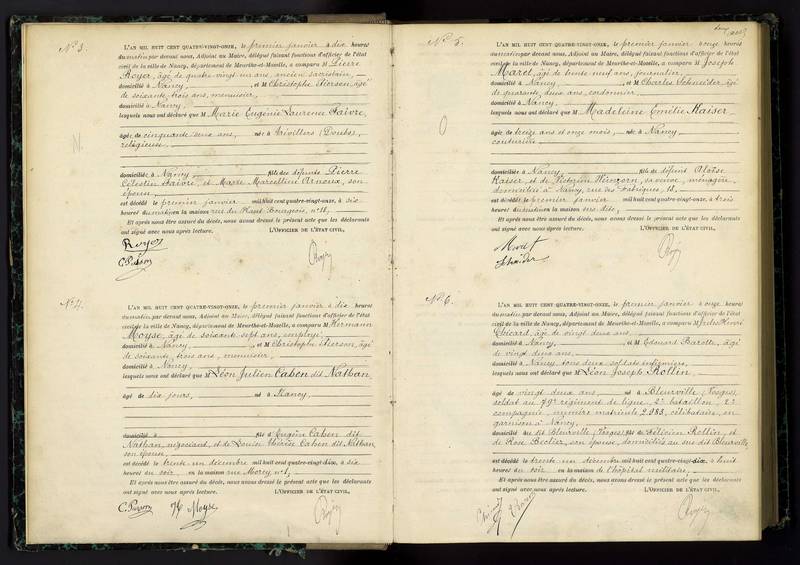 N° 3.
L'AN MIL HUIT CENT QUATRE-VINGT-ONZE, le premier janvier à dix heures
du matin par devant nous, Adjoint au Maire, délégué faisant fonctions d'officier de l'état
civil de la ville de Nancy, département de Meurthe-et-Moselle, a comparu M Pierre
Royer, âgé de quatre-vingt-un ans, ancien sacristain,
domicilié à Nancy, et M Christophe Pierson, âgé
de soixante trois ans, menuisier,
domicilié à Nancy,
lesquels nous ont déclaré que M Marie Eugénie Laurence Faivre,
âgée de cinquante deux ans, née à Vivillers (Doubs),
religieuse
domiciliée à Nancy, fille des défunts Pierre
Célestin Faivre, et Marie Marcelline Arnoux, son
épouse
est décédée le premier janvier mil huit cent quatre-vingt-onze, à six
heures du matin en la maison rue du Haut Bourgeois, n° 11,
Et après nous être assuré du décès, nous avons dressé le présent acte que les déclarants
ont signé avec nous après lecture. L'OFFICIER DE L'ÉTAT CIVIL,
Royer
C. Pierson
N° 4.
L'AN MIL HUIT CENT QUATRE-VINGT-ONZE, le premier janvier à dix heures
du matin par devant nous, Adjoint au Maire, délégué faisant fonctions d'officier de l'état
civil de la ville de Nancy, département de Meurthe-et-Moselle, a comparu M Hermann
Moyse, âgé de soixante sept ans, employé,
domicilié à Nancy, et M Christophe Pierson, âgé
de soixante, trois ans, menuisier,
domicilié à Nancy,
lesquels nous ont déclaré que M Léon Julien Cahen dit Nathan,
âgé de dix jours, né à Nancy,
domicilié à fils d' Eugène Cahen dit
Nathan, négociant, et de Louise Thérèse Cahen dit Nathan,
son épouse
est décédé le trente un décembre mil huit cent quatre-vingt-dix, à dix
heures du soir, en la maison rue Morey n° 1,
Et après nous être assuré du décès, nous avons dressé le présent acte que les déclarants
ont signé avec nous après lecture. L'OFFICIER DE L'ÉTAT CIVIL,
C. Pierson H. Moyse
N° 5.
L'AN MIL HUIT CENT QUATRE-VINGT-ONZE, le premier janvier à onze heures
du matin par devant nous, Adjoint au Maire, délégué faisant fonctions d'officier de l'état
civil de la ville de Nancy, département de Meurthe-et-Moselle, a comparu M Joseph
Marot, âgé de trente neuf ans, journalier,
domicilié à Nancy et M Charles Schneider, âgé
de quarante, deux ans, cordonnier,
domicilié à Nancy,
lesquels nous ont déclaré que M Madeleine Emélie Kaiser,
âgée de treize ans et onze mois, née à Nancy,
couturière
domiciliée à Nancy, fille de défunt Aloïse
Kaiser, et de Victorine, sa veuve, ménagère,
domiciliée à Nancy, rue des Fabriques, 13,
est décédée le premier janvier mil huit cent quatre-vingt-onze, à trois
heures du matin en la maison sus dite,
Et après nous être assuré du décès, nous avons dressé le présent acte que les déclarants
ont signé avec nous après lecture. L'OFFICIER DE L'ÉTAT CIVIL,
Marot
Schneider
N° 6.
L'AN MIL HUIT CENT QUATRE-VINGT-ONZE, le premier janvier à onze heures
du matin par devant nous, Adjoint au Maire, délégué faisant fonctions d'officier de l'état
civil de la ville de Nancy, département de Meurthe-et-Moselle, a comparu M Jules Henri
Chicard, âgé de vingt deux ans,
domicilié à Nancy, et M Edouard Barotte, âgé
de vingt deux ans,
domicilié à Nancy, tous deux soldats infirmiers,
lesquels nous ont déclaré que M Léon Joseph Rollin,
âgé de vingt deux ans né à Bleurville (Vosges),
soldat au 79e régiment de ligne, 2e bataillon, 2e
compagnie, numéro matricule 2.983, célibataire, en
garnison à Nancy,
domicilié au dit Bleurville (Vosges), fils de Félicien Rollin, et
de Rose Beclier, son épouse, domiciliés au sus dit Bleurville,
est décédé le trente un décembre mil huit cent quatre-vingt-dix, à huit
heures du soir en la maison de l'hôpital militaire,
Et après nous être assuré du décès, nous avons dressé le présent acte que les déclarants
ont signé avec nous après lecture. L'OFFICIER DE L'ÉTAT CIVIL,